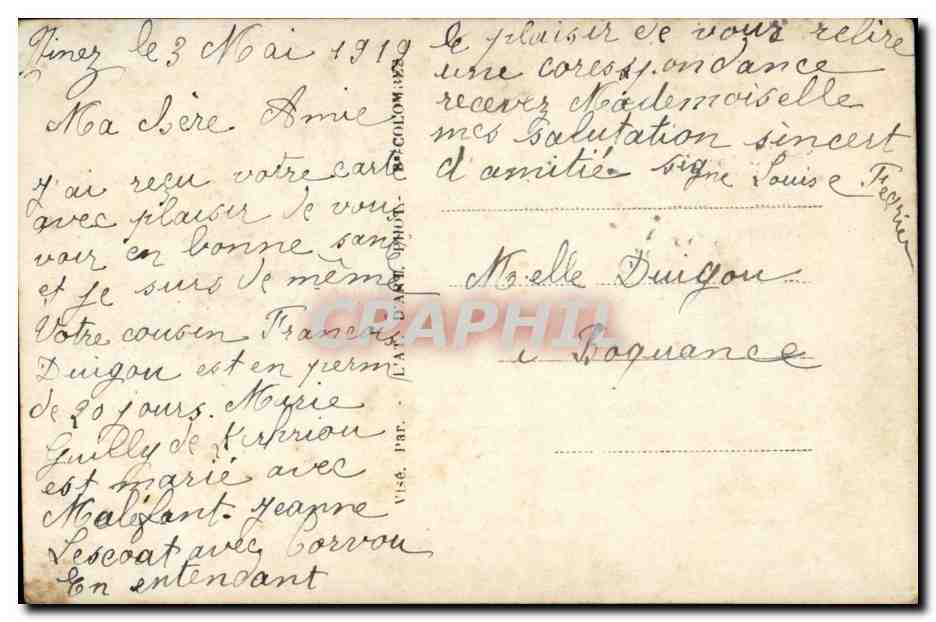 Ninez le 3 Mai 1919
Ma chère Amie
J'ai reçu votre carte
avec plaisir de vous
voir en bonne sant
et je suis de même
Votre cousin Francois
Duigou est en perm
de 20 jours. Marie
Guilly de
est marié avec
Maléfant. Jeanne
Lescoat avec Corvou
En entendant
le plaisir de vous relire
une corespondance
recevez Mademoiselle
mes salutation sincert
d'amitié signe Louise Fevrier
Melle Duigou
a Boquance
Visé. Par. L'AT. D'ART. PHOT. - Bs COLOMBES
CRAPHIL